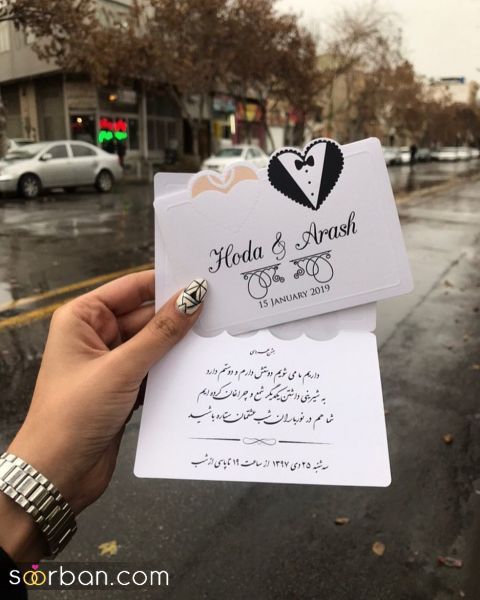 Hoda & Arash
15 January 2019
جشن عروسی
داریم ما می شویم دوستش دارم و دوستم دارد
به شیرینی داشتن یکدیگر شمع و چراغان کرده ایم
شما هم در نورباران شب عشقمان ستاره باشید
سه شنبه ۲۵ دی ۱۳۹۷ از ساعت ۱۹ تا پاسی از شب
soorban.com